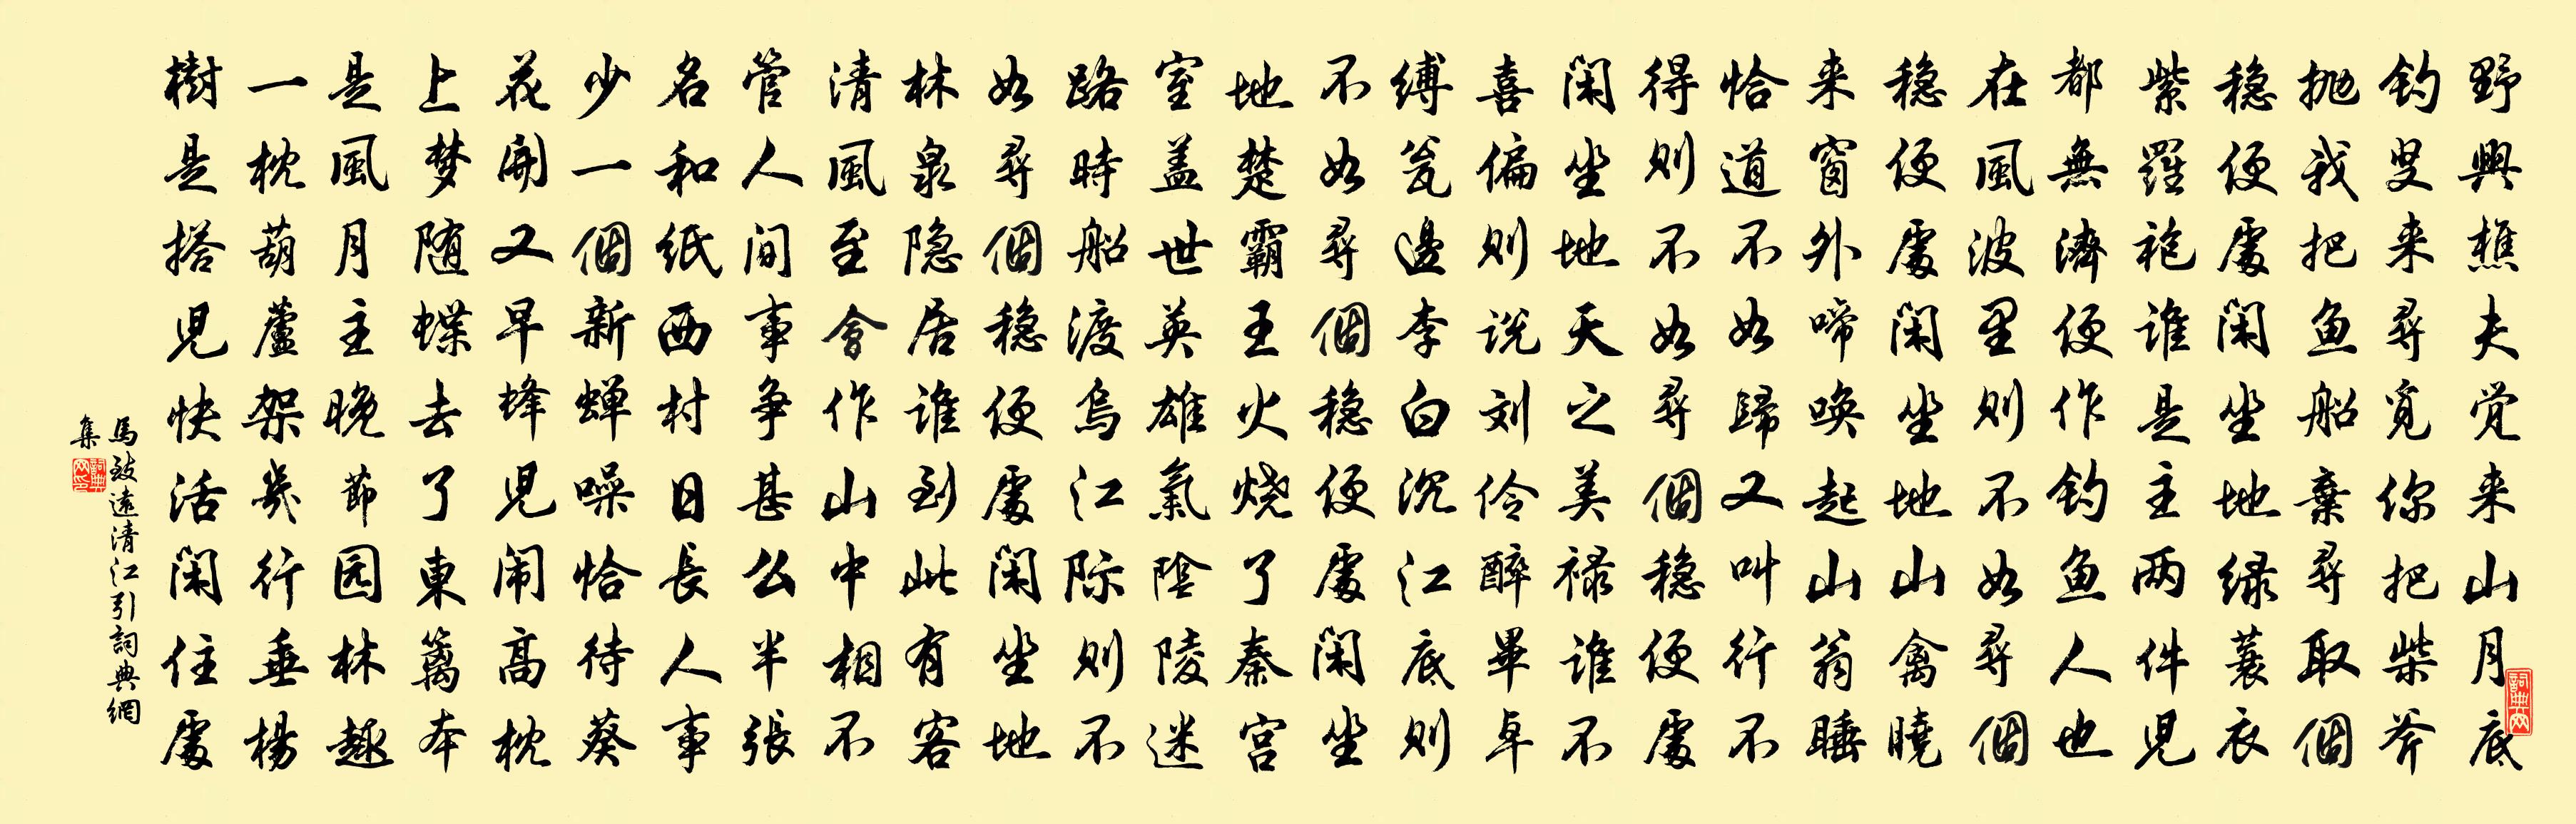 野興樵夫觉来山月底
钓叟来尋觅你把柴斧
抛我把鱼船棄尋取個
穏便處闲坐地緑蓑衣
紫羅袍谁是主两件児
都無濟便作钓鱼人也
在風波里则不如尋個
穏便處闲坐地山禽曉
来窗外啼唤起山翁睡
恰道不如歸又叫行不
得则不如尋個穏便處
闲坐地天之美禄谁不
喜偏则说刘伶醉畢卓
缚瓮邊李白沉江底则
不如尋個穏便處闲坐
地楚霸王火烧了秦宫
室盖世英雄氣陰陵迷
路時船渡烏江际则不
如尋個穏便處闲坐地
林泉隐居谁到此有客
清風至會作山中相不
管人间事争甚么半張
名和纸西村日長人事
少一個新蝉噪恰待葵
花開又早蜂児闹高枕
上梦随蝶去了東籬本
是風月主晚節园林趣
一枕葫蘆架幾行垂楊
樹是搭児快活闲住處
馬致遠清江引詞典網
集
詞典网
詞典网印